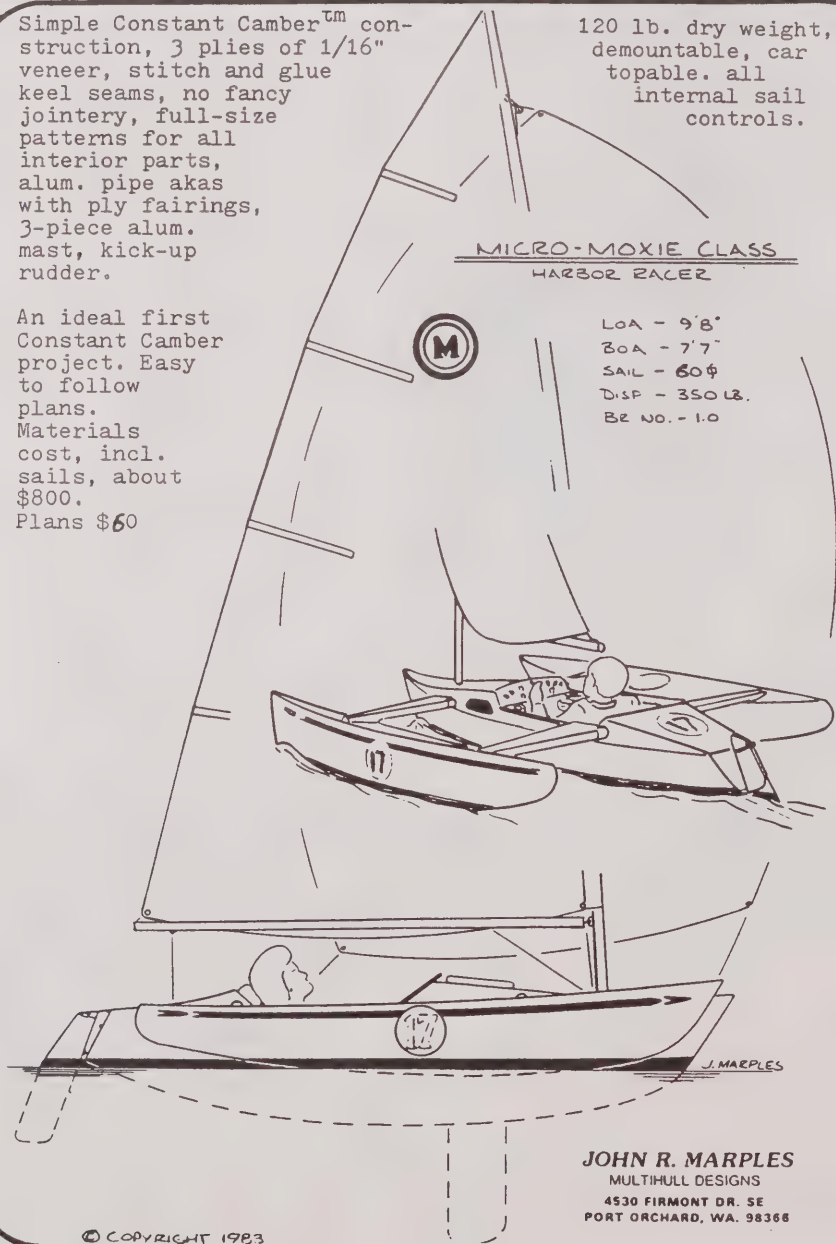 Simple Constant Camber™ con-
struction, 3 plies of 1/16"
veneer, stitch and glue
keel seams, no fancy
jointery, full-size
patterns for all
interior parts,
alum. pipe akas
with ply fairings,
3-piece alum.
mast, kick-up
rudder.
An ideal first
Constant Camber
project. Easy
to follow
plans.
Materials
cost, incl.
sails, about
$800.
Plans $60
120 lb. dry weight,
demountable, car
topable. all
internal sail
controls.
MICRO-MOXIE CLASS
HARBOR RACER
LOA - 9'8"
BOA - 7'7"
SAIL - 60⏀
DISP - 350 LB.
BR NO. - 1.0
M
17
17
17
J. MARPLES
JOHN R. MARPLES
MULTIHULL DESIGNS
4530 FIRMONT DR. SE
PORT ORCHARD, WA. 98366
© COPYRIGHT 1983